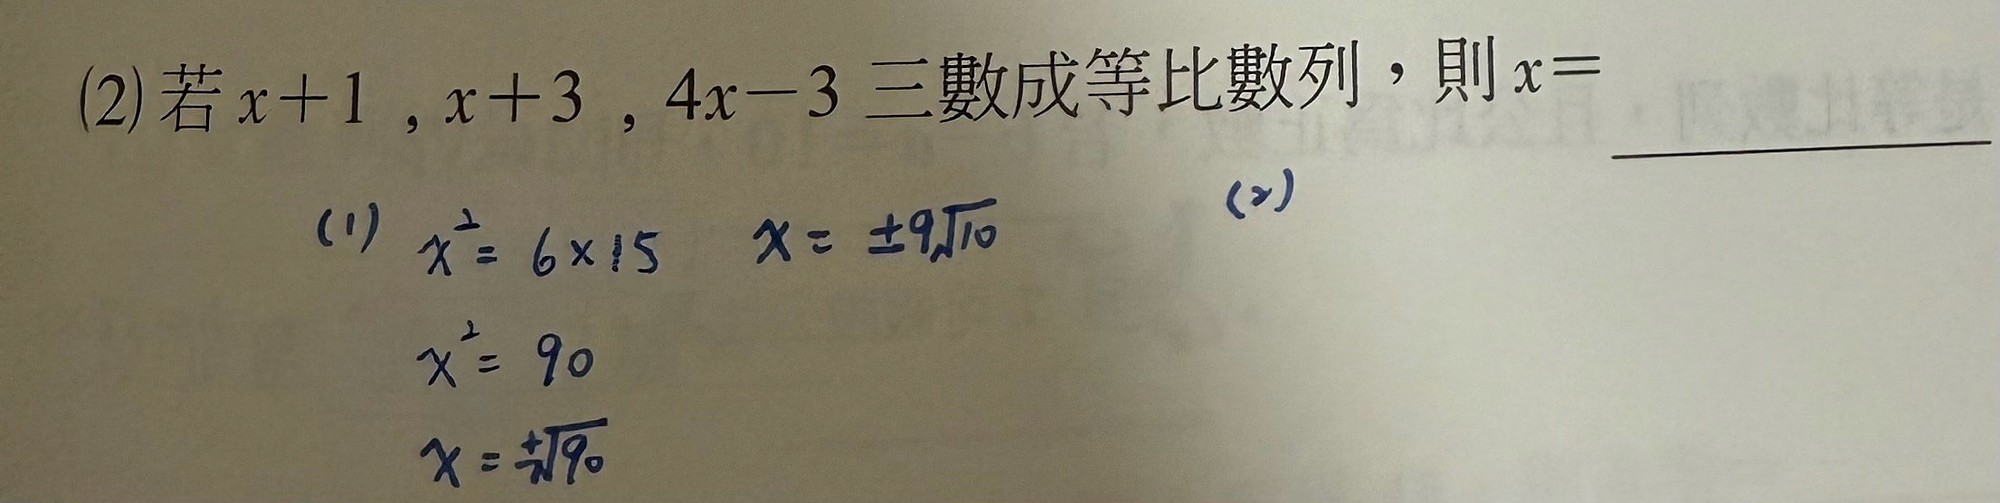 (2) 若 x+1 , x+3 , 4x−3 三數成等比數列，則 x=
(1) x²= 6×15 x= ±9√10 (2)
x²= 90
x=±√90